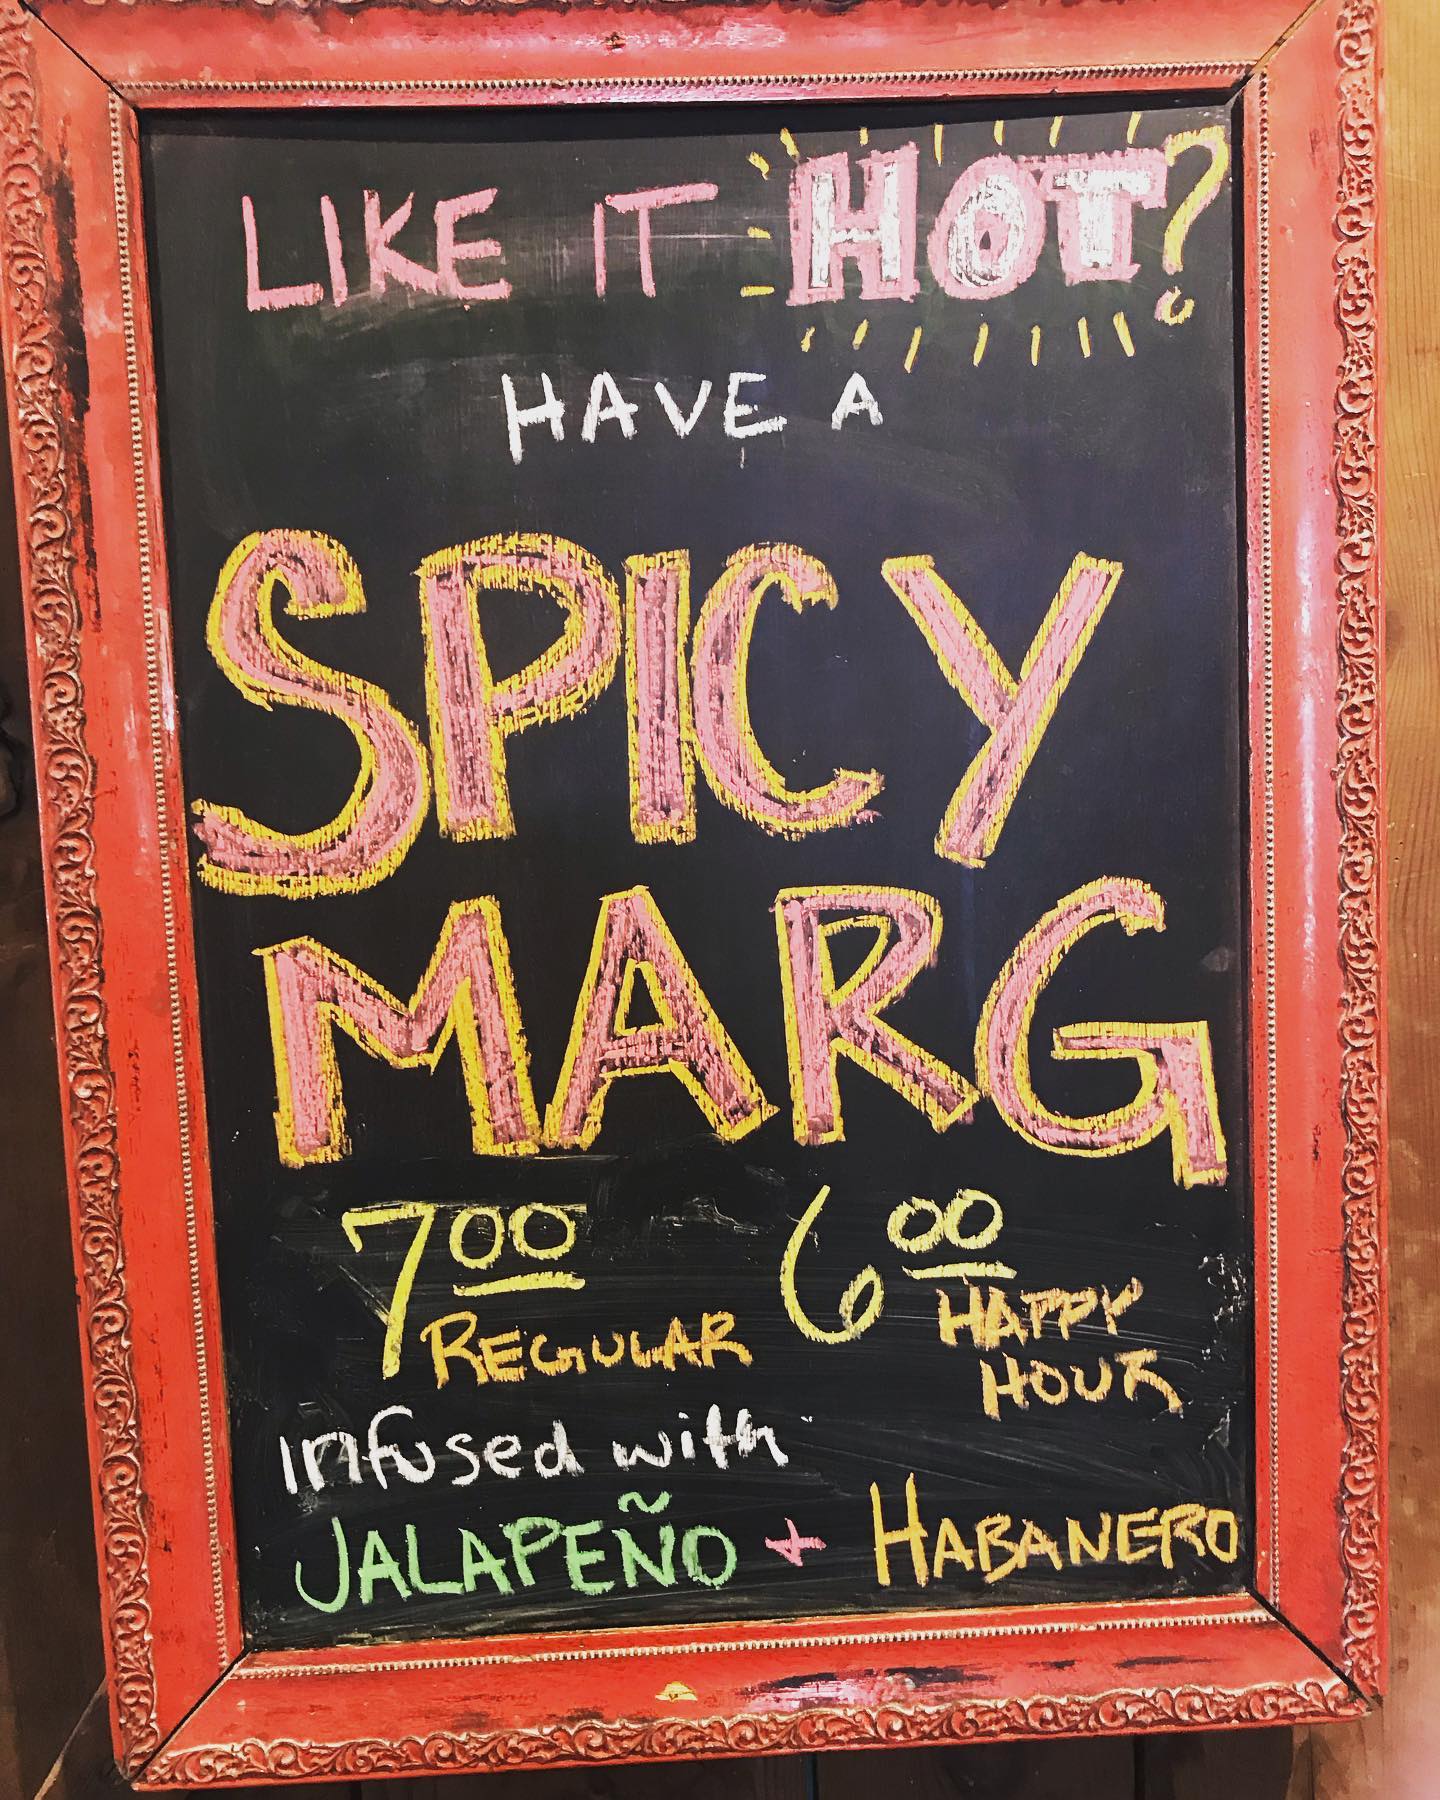 LIKE IT HOT?
HAVE A
SPICY
MARG
700 600
REGULAR HAPPY
HOUR
infused with
JALAPEÑO + HABANERO